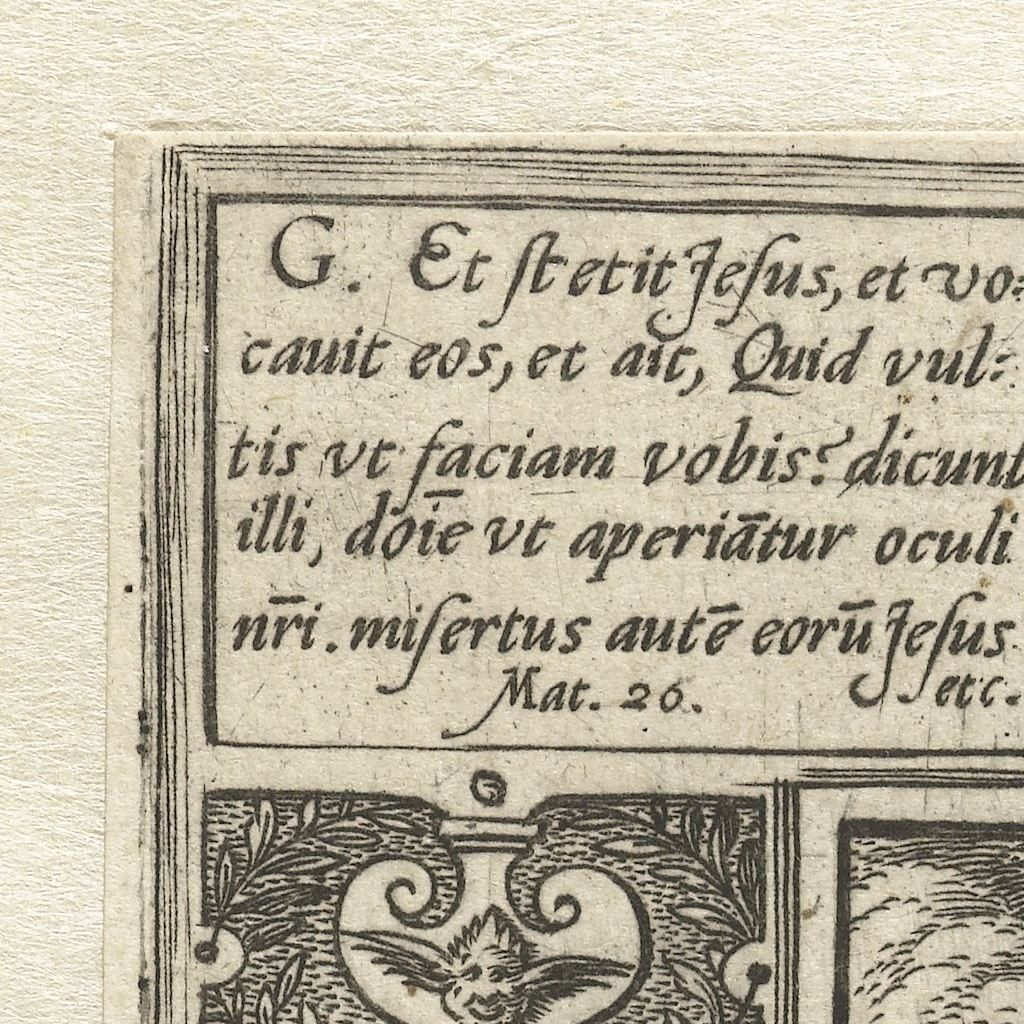 G. Et ſtetit Jeſus, et vo:
cauit eos, et ait, Quid vul:
tis vt faciam vobis? dicunt
illi, doīe vt aperiātur oculi
nr̄i. miſertus autē eorū Jeſus.
Mat. 26. etc.